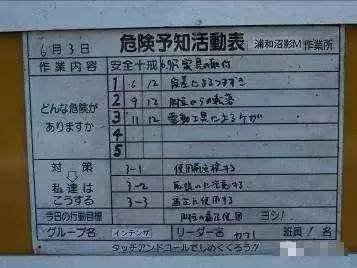 6月3日 危険予知活動表 浦和沼影M 作業所
作業内容 安全十戒 家具の取付
どんな危険が
ありますか
1 6 12 段差によるつまずき
2 9 12 脚立からの転落
3 11 12 電動工具によるケガ
4
5
対策
➡
私達は
こうする
3-1 使用前点検する
3-2 足場に注意する
3-3 適正に使用する
今日の行動目標 脚立の適正使用 ヨシ!
グループ名 インテンザ リーダー名 班員! 名
タッチアンドコールでしめくくろう!!